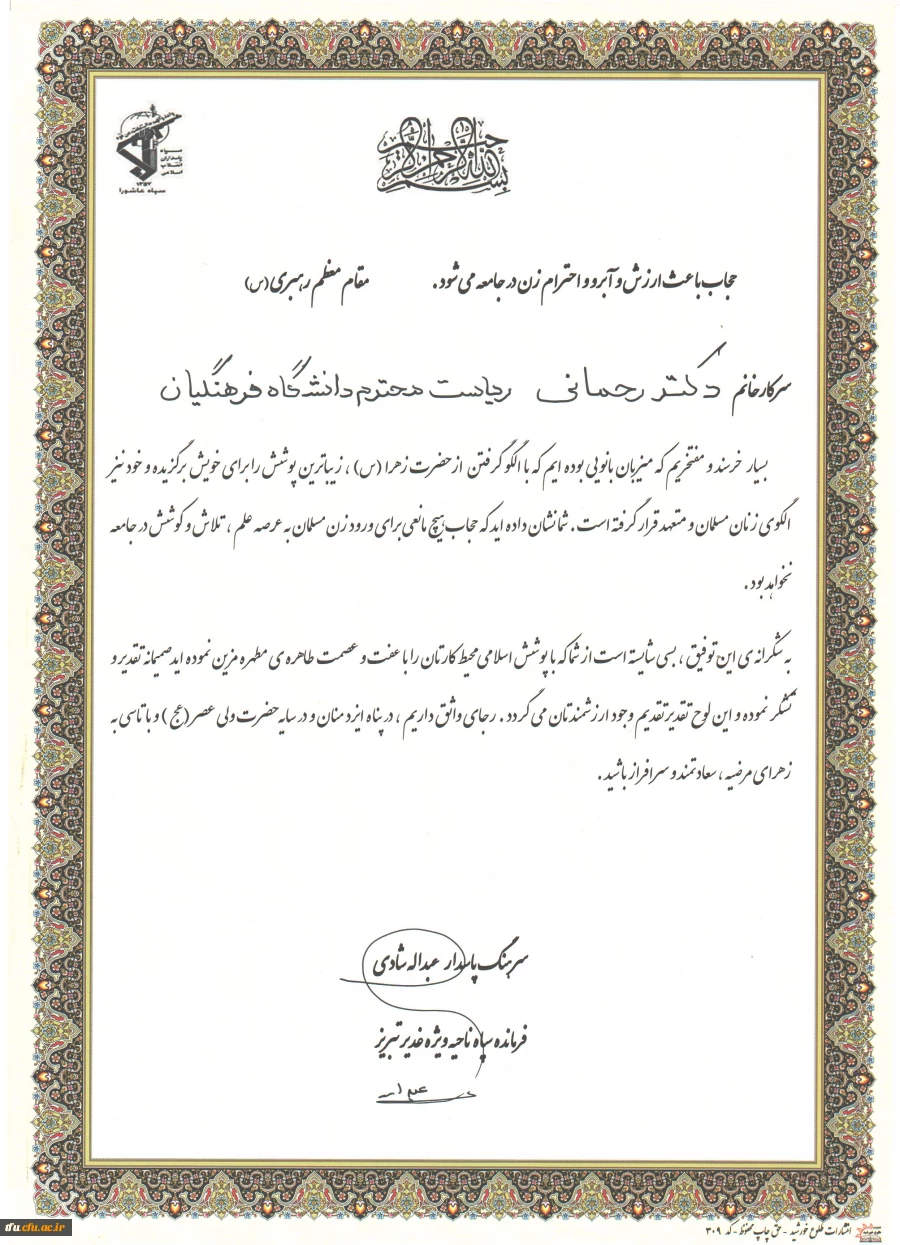 بسم الله الرحمن الرحیم
سپاه
پاسداران
انقلاب
اسلامی
۱۳۵۷
سپاه عاشورا
حجاب باعث ارزش و آبرو و احترام زن در جامعه می شود. مقام معظم رهبری (س)
سرکار خانم دکتر رحمانی ریاست محترم دانشگاه فرهنگیان
بسیار خرسند و مفتخریم که میزبان بانویی بوده ایم که با الگو گرفتن از حضرت زهرا (س) ، زیباترین پوشش را برای خویش برگزیده و خود نیز
الگوی زنان مسلمان و متعهد قرار گرفته است . شما نشان داده اید که حجاب هیچ مانعی برای ورود زن مسلمان به عرصه علم ، تلاش و کوشش در جامعه
نخواهد بود .
به شکرانه ی این توفیق ، بسی شایسته است از شما که با پوشش اسلامی محیط کارتان را با عفت و عصمت طاهره ی مطهره مزین نموده اید صمیمانه تقدیر و
تشکر نموده و این لوح تقدیر تقدیم وجود ارزشمندتان می گردد . رجای واثق داریم ، در پناه ایزد منان و در سایه حضرت ولی عصر (عج ) و با تاسی به
زهرای مرضیه ، سعادتمند و سرافراز باشید .
سرهنگ پاسدار عبداله شادی
فرمانده سپاه ناحیه ویژه غدیر تبریز
انتشارات طلوع خورشید - حق چاپ محفوظ - کد ۳۰۹
tfu.cfu.ac.ir